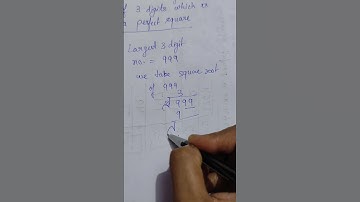 of 3 digits which is
a perfect square
Largest 3 digit
no. = 999
we take square root
of 999
3
3 999
9